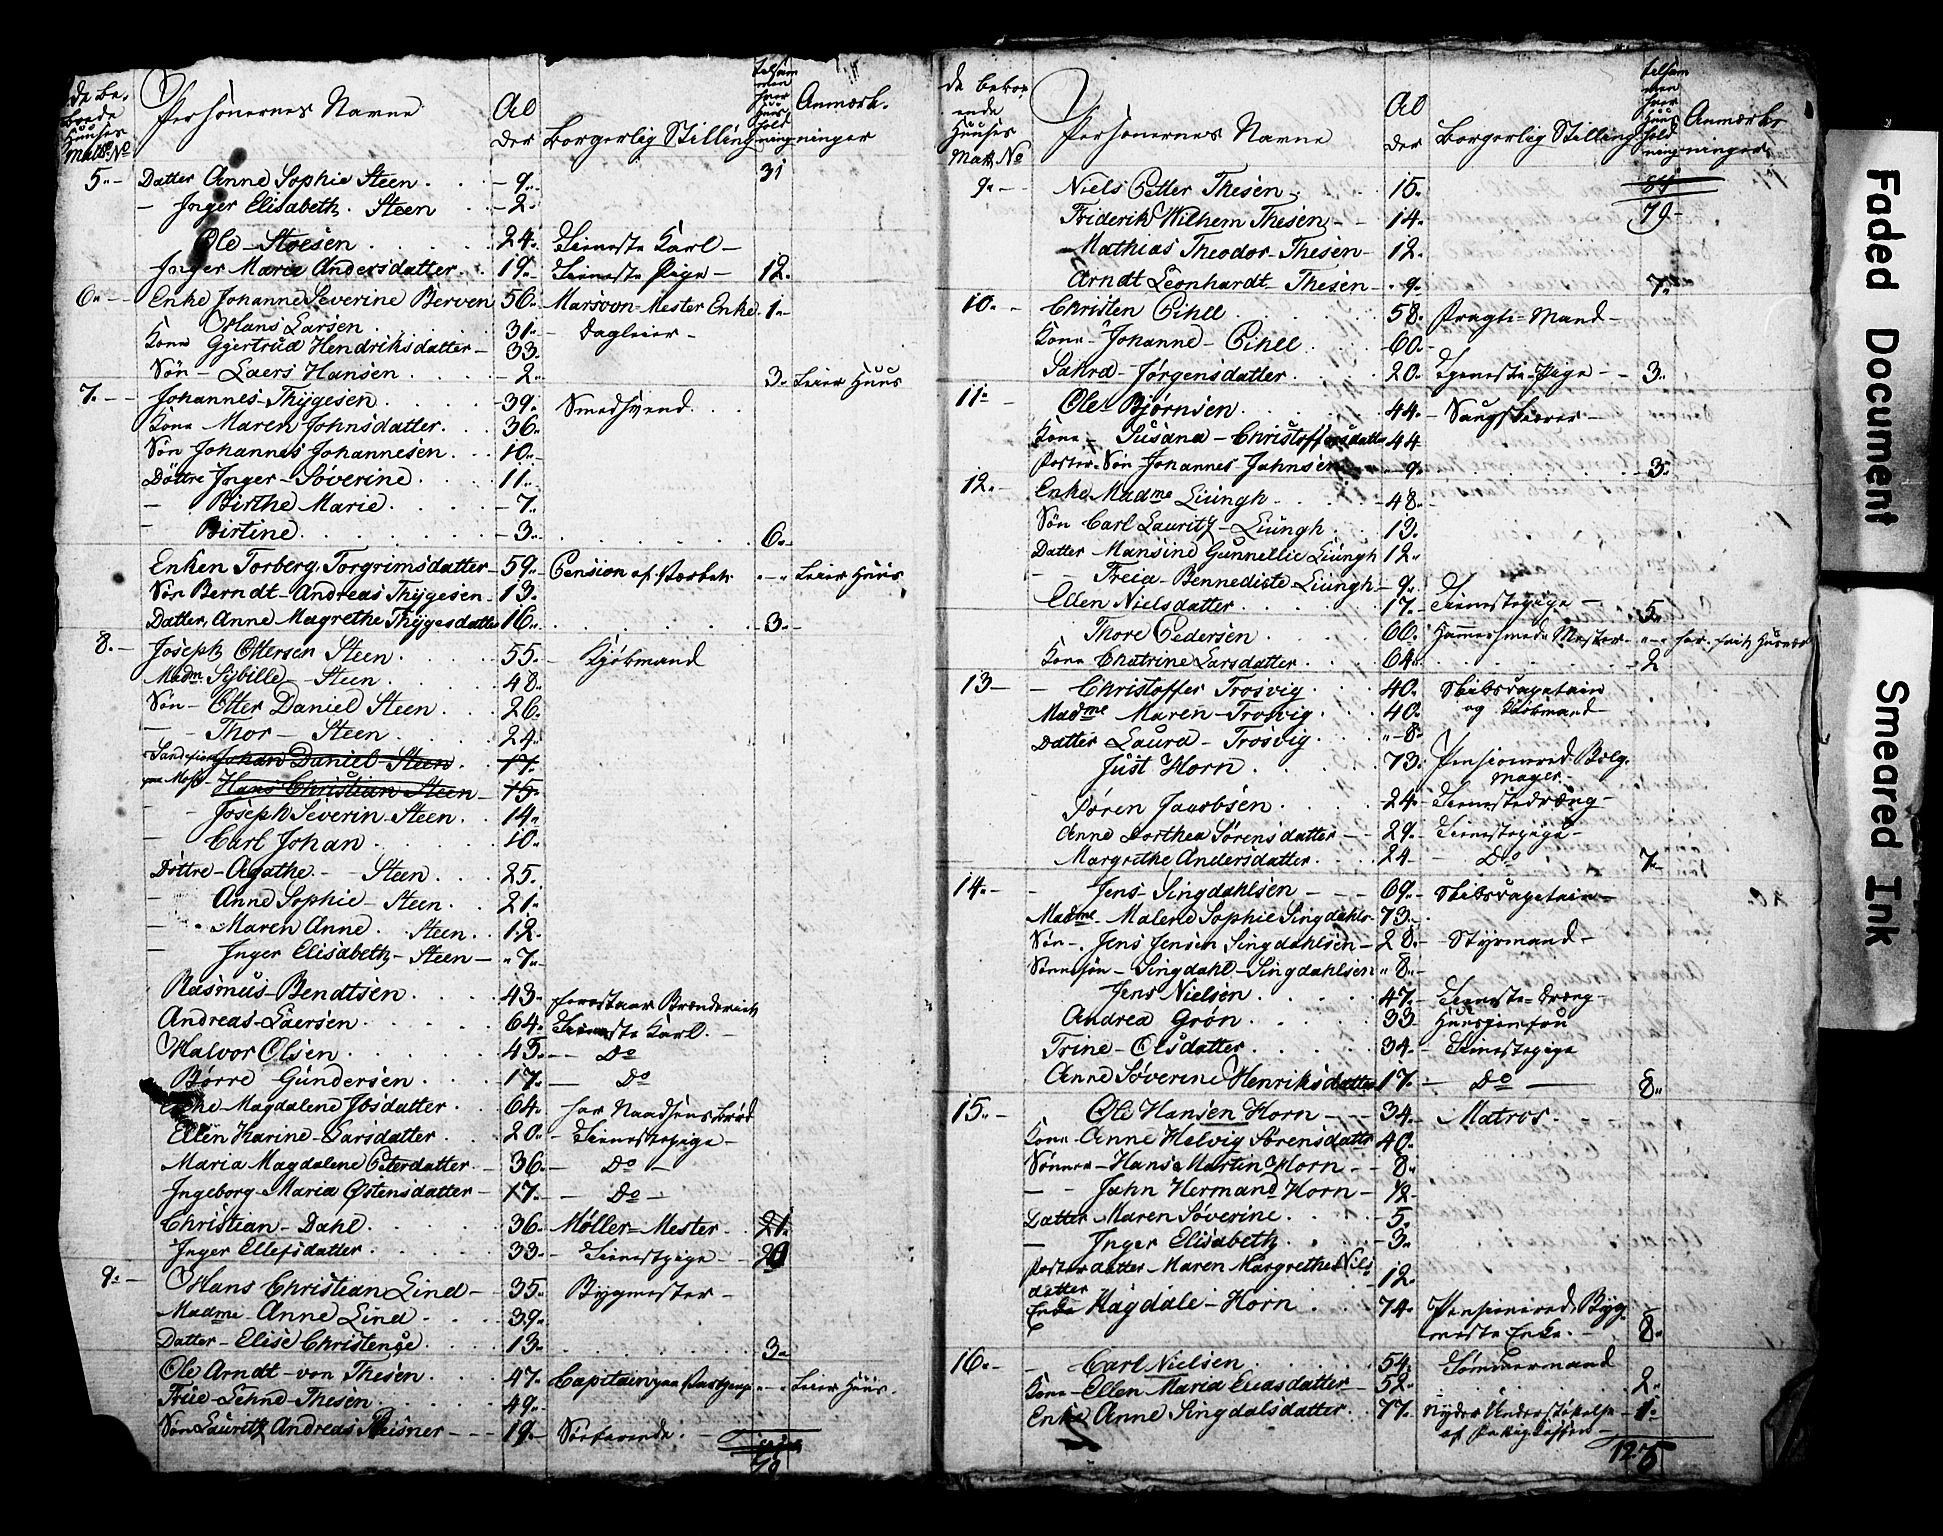 de be- boede Huuses Matr. No
Personernes Navne
Al der
Borgerlig Stilling
tilsam men hver Huus hold ning
Anmærk- ninger
31
5. Datter Anne Sophie Steen 9.
Inger Elisabeth Steen 2.
Ole 24. Tieneste Karl
Inger Marie Andersdatter 19. Tieneste Pige 12.
6. Enke Johanne Severine Berven 56. Mester Enke 1.
Hans Larsen 31. Dagleier
Kone Gjertrud Hendriksdatter 33.
Søn Laers Hansen 2. 3. Leier Huus
7. Johannes Thygesen 39. Smedsvend
Kone Maren Johnsdatter 36.
Søn Johannes Johannesen 10.
Döttre Inger Söverine 11.
Birthe Marie 7.
Birtine 3. 6.
Enken Torberg Torgrimsdatter 59. Pension af Leier Huus
Søn Berndt Andreas Thygesen 13.
Datter Anne Magrethe Thygesdatter 16. 3.
8. Joseph Ottersen Steen 55. Kjöbmand
Madm. Sybille Steen 48.
Søn Otter Daniel Steen 26.
Thor Steen 24.
Johan Daniel Steen 17.
paa Moss Hans Christian Steen 15.
Joseph Severin Steen 14.
Carl Johan 10.
Döttre Agathe Steen 25.
Anne Sophie Steen 21.
Maren Anne Steen 12.
Inger Elisabeth Steen 7.
Rasmus Bendtsen 43. forestaar Brænderiet
Andreas Laersen 64. Tieneste Karl
Halvor Olsen 45. Do
Børre Gundersen 17. Do
Magdalene Josdatter 64. har Naadsens Bröd
Ellen Karine Larsdatter 20. Tienestepige
Maria Magdalene Petersdatter 36. Do
Ingeborg Maria Østensdatter 17. Do
Christian Dahl 36. Møller Mester 21.
Inger Ellefsdatter 33. Tienestpige 20
9. Hans Christian Lind 35. Bygmester
Madme Anne Lind 39.
Datter Elise Christense 13. 3.
Ole Arndt von Thesen 47. Capitain Leier Huus
Frue Lehne Thesen 49.
Søn Lauritz Andreas 19. Søefarende
79
de beboe ende Huuses Matr. No
Personernes Navne
Al der
Borgerlig Stilling
tilsam men hver Huus hold ning
Anmærk ninger
79
9. Niels Petter Thesen 15.
Friderik Wilhem Thesen 14.
Mathias Theodor Thesen 12.
Arndt Leonhardt Thesen 9. 7.
10. Christen Pihll 58. Mand
Kone Johanne Pihll 60.
Sahra Jørgensdatter 20. Tjeneste Pige 3.
11. Ole Bjørnsen 44. Saugskiærer
Kone Susana Christoffersdatter 44
Foster Søn Johannes Jahnsen 9. 3.
12. Enke Madme Liungh 48.
Søn Carl Lauritz Liungh 13.
Datter Mansine Gunnellie Liungh 12.
Freia Bennediste Liungh 9.
Ellen Nielsdatter 17. Tienestepige 5.
Thore Pedersen 66. Hammersmeds Mester har frit Huus
Kone Chatrine Larsdatter 64. 2
13 Christoffer Trosvig 40. Skibscapetain og Kiöbmand
Madme Maren Trosvig 40.
Datter Laura Trosvig 8.
Just Horn 73. Pensionered Bælg mager
Søren Jacobsen 24. Tienestedræng
Anne Dorthea Sørensdatter 29. Tienestepige
Margrethe Andersdatter 24 Do 7.
14. Jens Singdahlsen 69. Skibscapetain
Madme Malene Sophie Singdahls 73.
Søn Jens Jensen Singdahlsen 28. Styrmand
Sønnesøn Singdahl Singdahlsen 8.
Jens Nielsen 47. Tieneste Dræng
Andrea Grön 33 Huusjomfru
Trine Olsdatter 34. Tienestepige
Anne Söverine Henriksdatter 17. Do 8.
15. Ole Hansen Horn 34. Matros
Kone Anne Helvig Sørensdatter 40.
Sønner Hans Martin Horn 8.
Jahn Hermand Horn 12
Datter Maren Söverine 5.
Inger Elisabeth 3.
Foster datter Maren Margrethe Nils datter 12.
Enke Magdale Horn 74. Pensionered Byg mester Enke 8.
16. Carl Nielsen 54. Tömmermand
Kone Ellen Maria datter 52. 2.
Enke Anne Singdalsdatter 77. Nyder Understøttelse af Fattig Kassen 1.
125
Faded Document
Smeared Ink